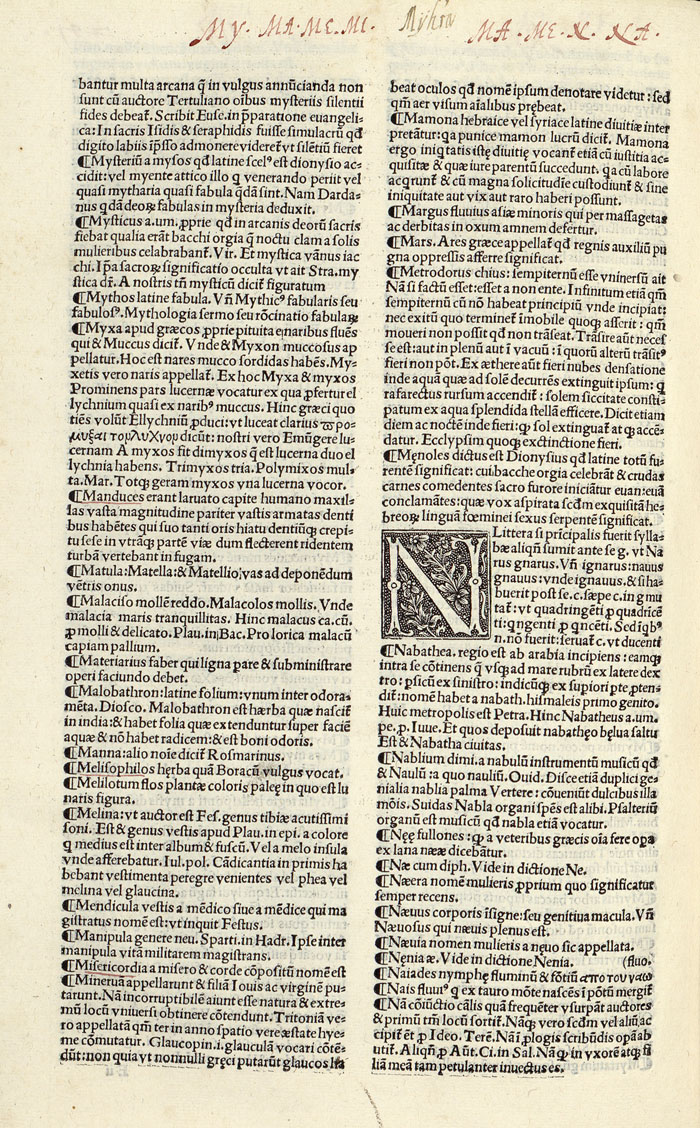 MY. MA. ME. MI. Myhra MA. ME. N. NA.
bantur multa arcana q̃ in vulgus annũcianda non
sunt cũ auctore Tertuliano oĩbus mysteriis silentii
fides debeat̃. Scribit Euse. in p̃paratione euangeli-
ca: In sacris Isidis & seraphidis fuisse simulacrũ qđ
digito labiis ip̃sso admonere videret̃ vt silẽtiũ fieret
¶Mysteriũ a mysos qđ latine scel⁹ est dionysio ac-
cidit: vel myente attico illo q̃ venerando periit vel
quasi mytharia quasi fabula q̃dã sint. Nam Darda-
nus q̃dã deoꝝ fabulas in mysteria deduxit.
¶Mysticus a.um. ꝓprie qđ in arcanis deorũ sacris
fiebat qualia erãt bacchi orgia q̃ noctu clam a solis
mulieribus celebrabant̃. Vir. Et mystica vãnus iac
chi. Ip̃a sacroꝝ significatio occulta vt ait Stra. my
stica dr̃. A nostris tñ mysticũ dicit̃ figuratum
¶Mythos latine fabula. Vñ Mythic⁹ fabularis seu
fabulos⁹. Mythologia sermo seu rõcinatio fabulaꝝ
¶Myxa apud græcos ꝓprie pituita e naribus fluẽs
qui & Muccus dicit̃. Vnde & Myxon muccosus ap
pellatur. Hoc est nares mucco sordidas habẽs. My-
xetis vero naris appellat̃. Ex hoc Myxa & myxos
Prominens pars lucernæ vocatur ex qua ꝓfertur el
lychnium quasi ex narib⁹ muccus. Hinc græci quo
tiẽs volũt Ellychniũ ꝓduci: vt luceat clarius προ-
μυξαι τορ λυχνορ dicũt: nostri vero Emũgere lu-
cernam A myxos fit dimyxos q̃ est lucerna duo el
lychnia habens. Trimyxos tria. Polymixos mul-
ta. Mar. Totq̃ geram myxos vna lucerna vocor.
¶Manduces erant laruato capite humano maxil-
las vasta magnitudine pariter vastis armatas denti
bus habẽtes qui suo tanti oris hiatu dentiũq̃ crepi-
tu sese in vtrãq̃ partẽ viæ dum flecterent ridentem
turbã vertebant in fugam.
¶Matula: Matella: & Matellio; vas ad deponẽdum
vẽtris onus.
¶Malacifo mollẽ reddo. Malacolos mollis. Vnde
malacia maris tranquillitas. Hinc malacus ca.cũ.
ꝓ molli & delicato. Plau. in Bac. Pro lorica malacũ
capiam pallium.
¶Materiarius faber qui ligna pare & subministrare
operi faciundo debet.
¶Malobathron: latine folium: vnum inter odora-
mẽta. Diosco. Malobathron est hærba quæ nascit̃
in india: & habet folia quæ extenduntur super faciẽ
aquæ & nõ habet radicem: & est boni odoris.
¶Manna: alio noĩe dicit̃ Rosmarinus.
¶Melisophilos hęrba quã Boracũ vulgus vocat.
¶Melilotum flos plantæ coloris paleę in quo est lu
naris figura.
¶Melina: vt auctor est Fes. genus tibiæ acutissimi
soni. Est & genus vestis apud Plau. in epi. a colore
q̃ medius est inter album & fuscũ. Vel a melo insula
vnde afferebatur. Iul. pol. Cãdicantia in primis ha
bebant vestimenta peregre venientes vel phea vel
melina vel glaucina.
¶Mendicula vestis a mẽdico siue a mẽdice qui ma
gistratus nomẽ est: vt inquit Festus.
¶Manipula genere neu. Sparti. in Hadr. Ipse inter
manipula vitã militarem magistrans.
¶Misericordia a misero & corde cõpositũ nomẽ est
¶Mineruã appellarunt & filiã Iouis ac virginẽ pu-
tarunt. Nã incorruptibilẽ aiunt esse natura & extre-
mũ locũ vniuersi obtinere cõtendunt. Tritoniã ve-
ro appellatã qm̃ ter in anno spatio vere æstate hye-
me cõmutatur. Glaucopin. i. glauculã vocari cõtẽ-
dũt: non quia vt nonnulli gręci putarũt glaucos ha
beat oculos qđ nomẽ ipsum denotare videtur: sed
qm̃ aer visum aĩalibus prębeat.
¶Mamona hebraice vel syriace latine diuitiæ inter
pretãtur: qa punice mamon lucrũ dicit̃. Mamona
ergo iniq̃tatis istę diuitię vocant̃ etiã cũ iustitia ac-
quisitæ & quæ iure parentũ succedunt. q̃a cũ labore
acq̃runt̃ & cũ magna solicitudĩe custodiunt̃ & sine
iniquitate aut vix aut raro haberi possunt.
¶Margus fluuius asiæ minoris qui per massagetas
ac derbitas in oxum amnem defertur.
¶Mars. Ares græce appellat̃ qđ regnis auxiliũ pu
gna oppressis afferre significat.
¶Metrodorus chius: sempiternũ esse vniuersũ ait
Nã si factũ esset: esset a non ente. Infinitum etiã qm̃
sempiternũ cũ nõ habeat principiũ vnde incipiat:
nec exitũ quo terminet̃ imobile quoq̃ asserit: qm̃
moueri non possit qđ non trãseat. Trãsire aũt necef
se est: aut in plenũ aut ĩ vacuũ: ĩ quorũ alterũ trãsit⁹
fieri non põt. Ex æthere aũt fieri nubes densatione
inde aquã quæ ad solẽ decurrẽs extinguit ipsum: q̃
rafarectus rursum accendit̃: solem siccitate consti-
patum ex aqua splendida stellã efficere. Dicit etiam
diem ac noctẽ inde fieri: q̃ sol extinguat̃ at q̃ accẽ-
datur. Ecclypsim quoq̃ exctinctione fieri.
¶Męnoles dictus est Dionysius qđ latine totũ fu-
rentẽ significat: cui bacche orgia celebrãt & crudas
carnes comedentes sacro furore iniciãtur euan: euã
conclamãtes: quæ vox aspirata scđm exquisitã he-
breoꝝ linguã fœminei sexus serpentẽ significat.
N Littera si prĩcipalis fuerit sylla-
bæ aliqñ sumit ante se g. vt Na
rus gnarus. Vñ ignarus: nauus
gnauus: vnde ignauus. & si ha-
buerit post se. c. sæpe c. in g mu
tat̃: vt quadringẽti ꝓ quadricẽ
ti: qngenti ꝓ qncẽti. Sed iqb⁹
n. nõ fuerit: seruat̃ c. vt ducenti
¶Nabathea. regio est ab arabia incipiens: eamq̃
intra se cõtinens q̃ vsq̃ ad mare rubrũ ex latere dex
tro: psicũ ex sinistro: indicũq̃ ex supiori pte pten-
dit̃: nomẽ habet a nabath. hismaleis primo genito.
Huic metropolis est Petra. Hinc Nabatheus a.um.
pe. ꝓ. Iuue. Et quos deposuit nabatheo bęlua saltu
Est & Nabatha ciuitas.
¶Nablium dimi. a nabulũ instrumentũ musicũ qđ
& Naulũ: a quo nauliũ. Ouid. Disce etiã duplici ge-
nialia nablia palma Vertere: cõueniũt dulcibus illa
mõis. Suidas Nabla organi spẽs est alibi. Psalteriũ
organũ est musicũ qđ nabla etiã vocatur.
¶Nęę fullones: q̃ a veteribus græcis oĩa fere opa
ex lana nææ dicebãtur.
¶Næ cum diph. Vide in dictione Ne.
¶Næera nomẽ mulieris ꝓprium quo significatur
semper recens.
¶Næuus corporis ĩsigne: seu genitiua macula. Vñ
Næuosus qui næuis plenus est.
¶Næuia nomen mulieris a nęuo sic appellata.
¶Nęnia æ. Vide in dictione Nenia. (fluo.
¶Naiades nymphę fluminũ & fõtiũ απο του ναω
¶Nais fluui⁹ q̃ ex tauro mõte nascẽs ĩ põtũ mergit̃
¶Nã cõiũctio cãlis quã frequẽter vsurpãt auctores
& primũ tm̃ locũ sortit̃. Nãq̃ vero scđm vel aliũ; ac
cipit̃ ẽt ꝓ Ideo. Terẽ. Nã ĩ ꝓlogis scribũdis opã ab
utit̃. Aliqñ ꝓ Aũt. Ci. in Sal. Nã q̃ in yxorẽ atq̃ fi
liã meã tam petulanter inuectus es.